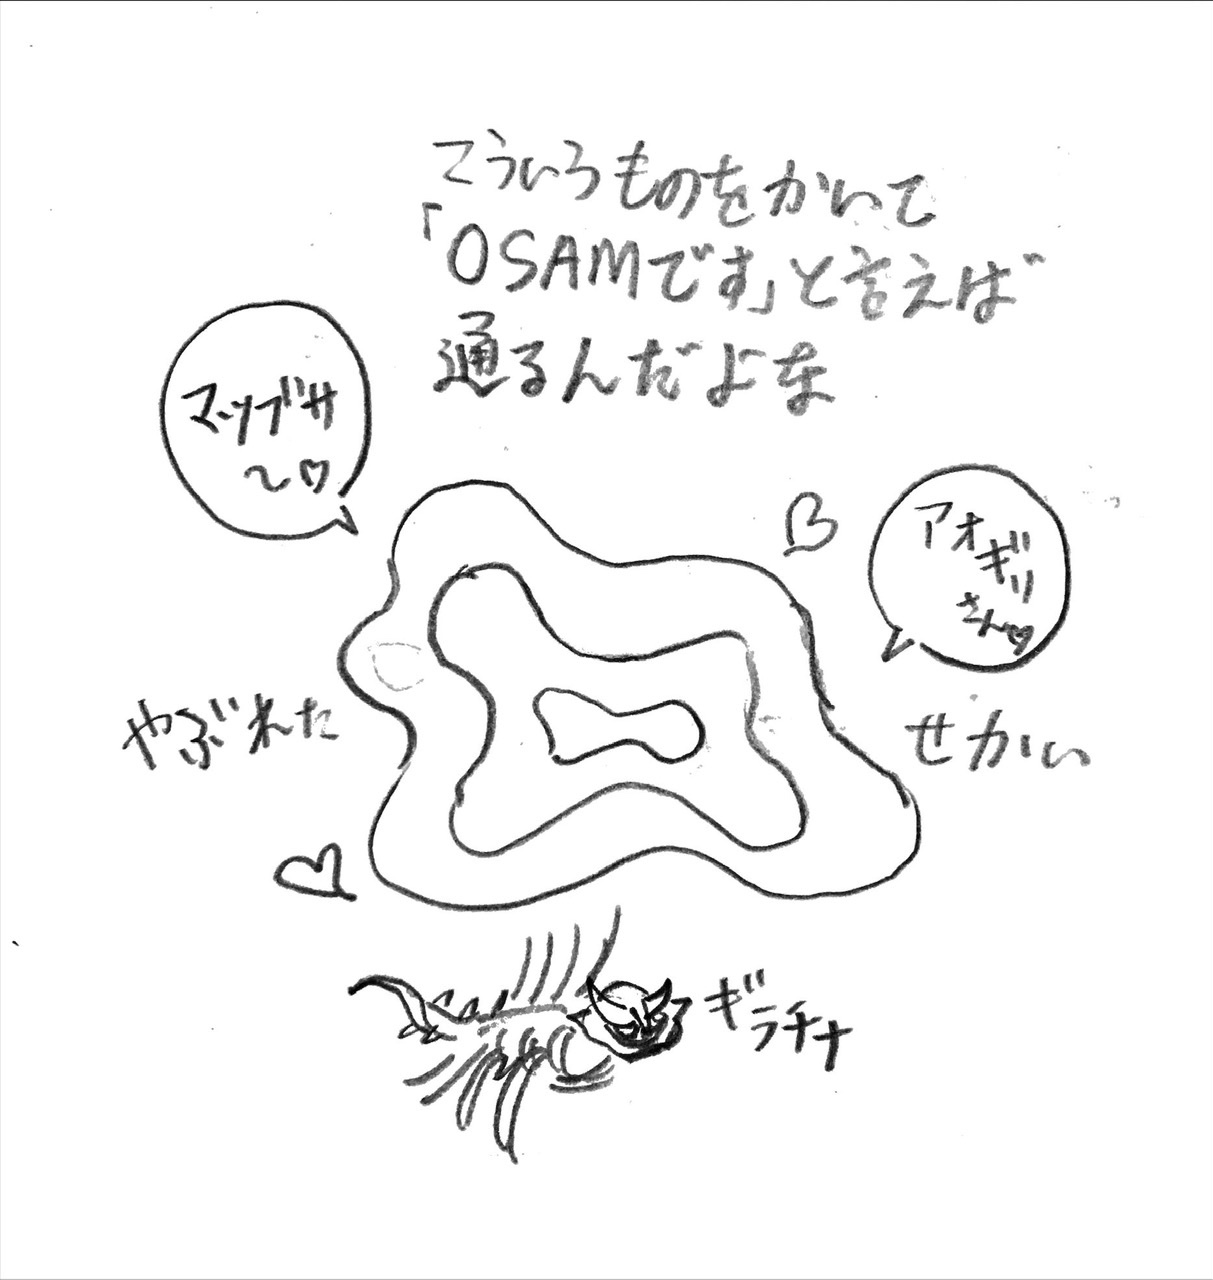 こういうものをかいて
「OSAMです」と言えば
通るんだよな
マツブサ
〜♡
アオギリ
さん♡
やぶれた
せかい
ギラチナ